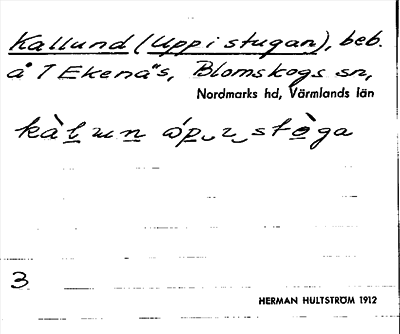 Kallund (Uppi stugan), beb.
å 7 Ekenäs, Blomskogs sn,
Nordmarks hd, Värmlands län
3
HERMAN HULTSTRÖM 1912